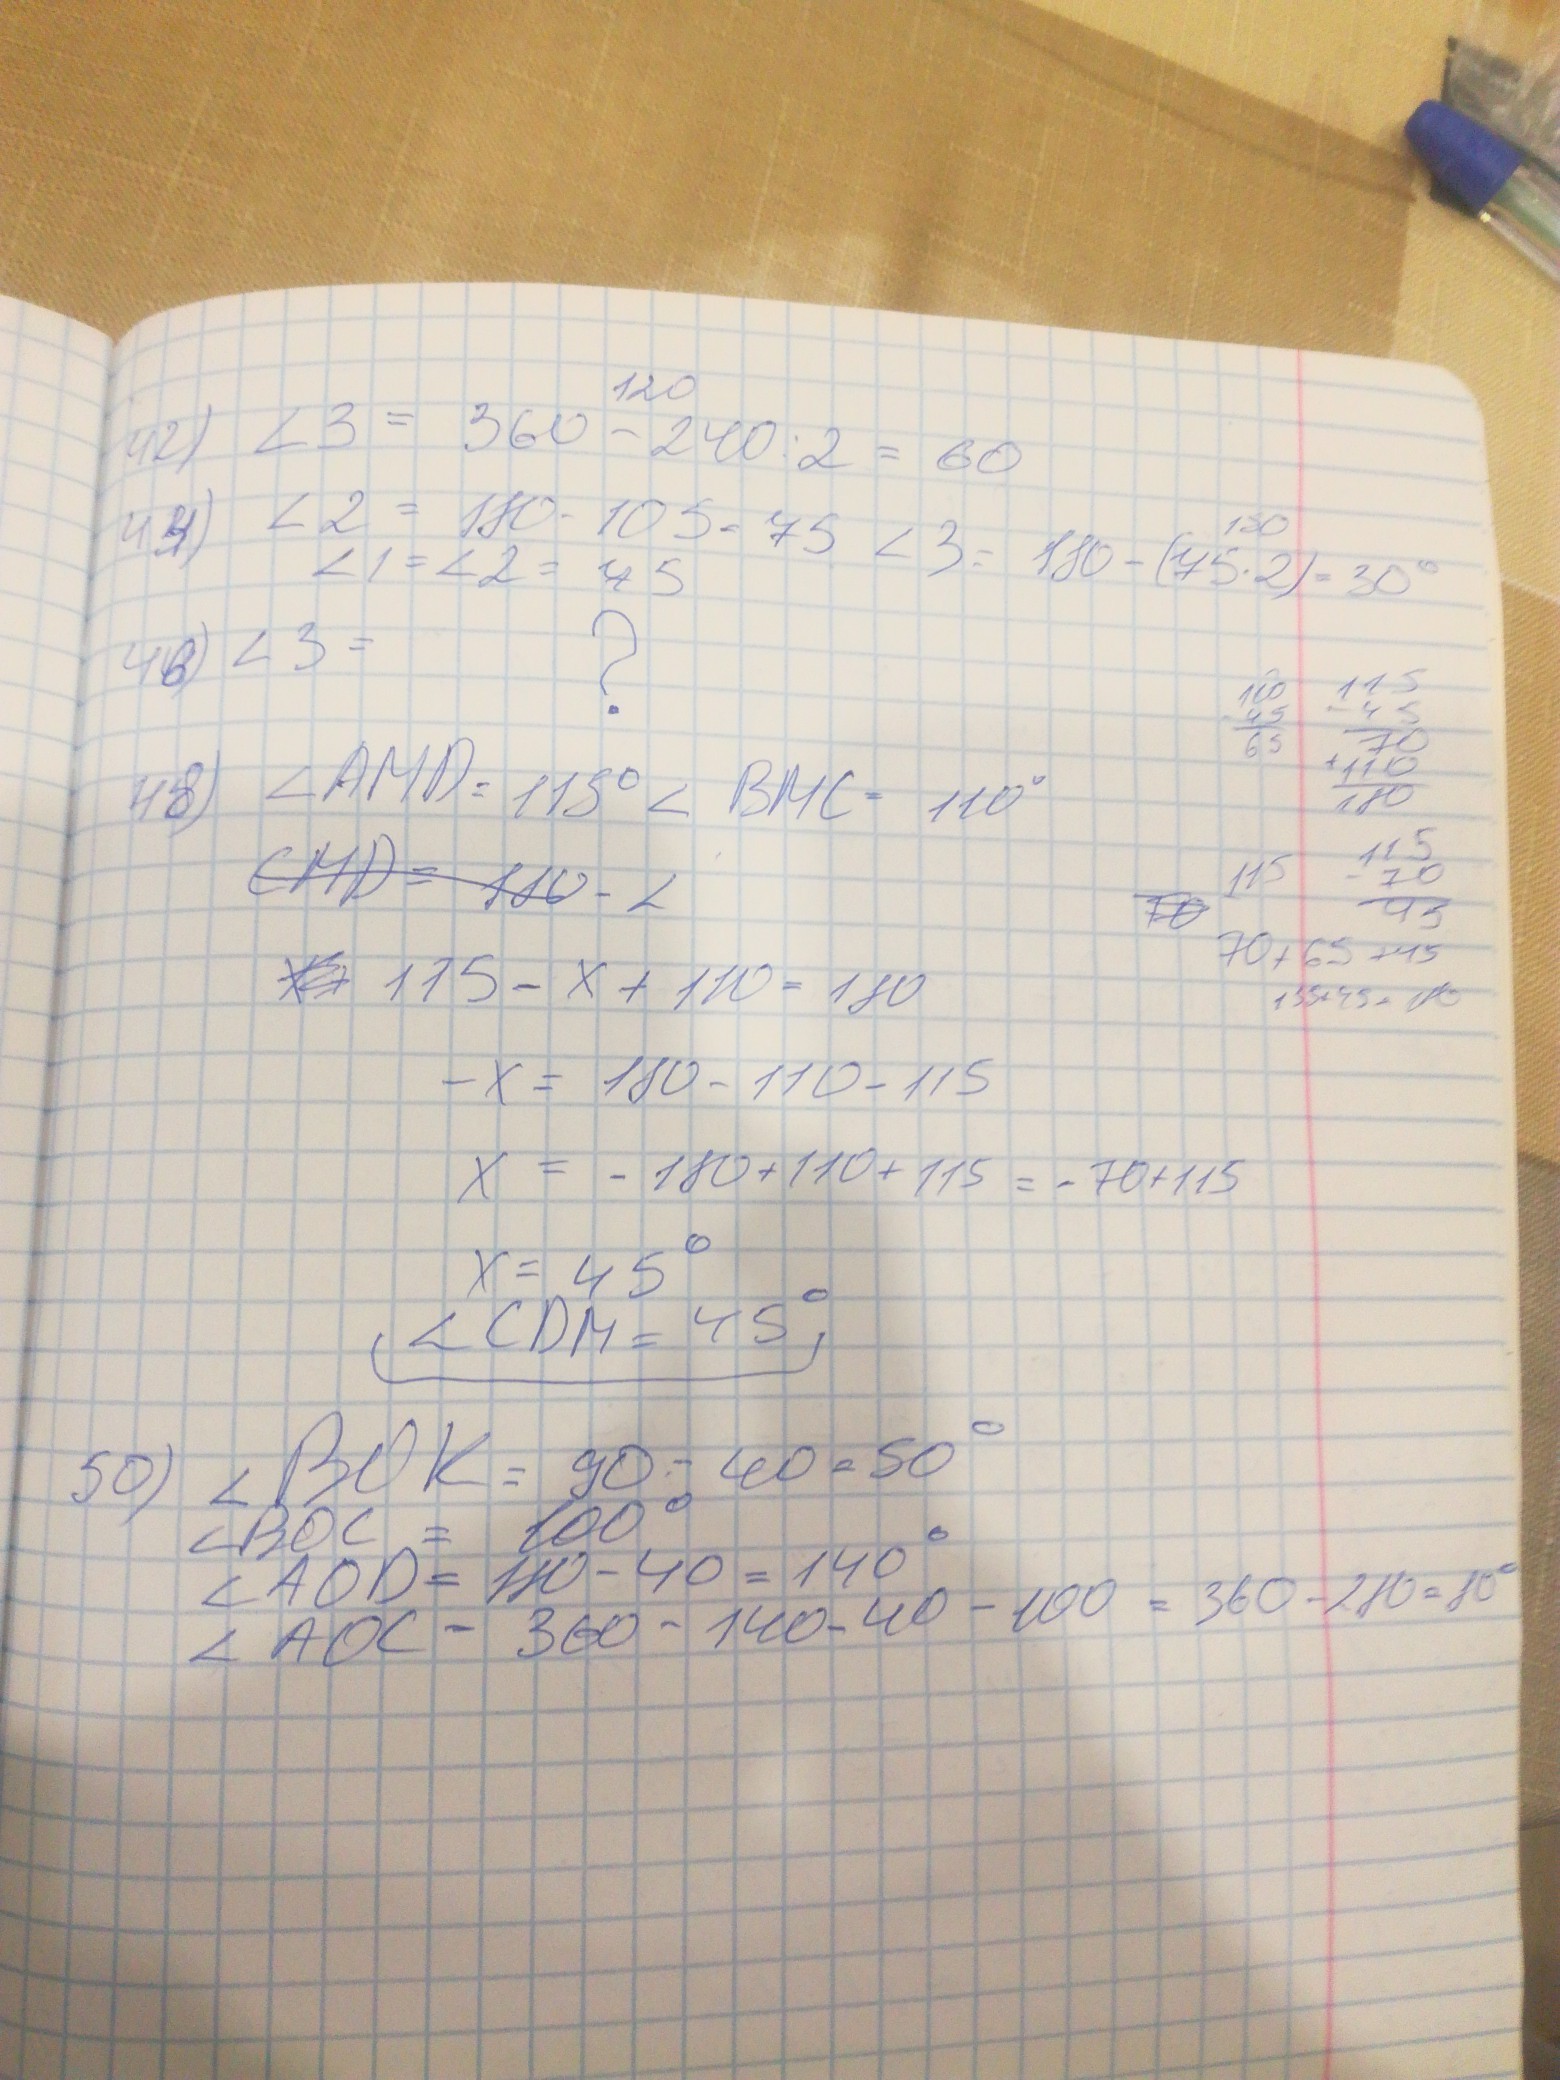 120
42) ∠3 = 360 - 240 : 2 = 60
44) ∠2 = 180 - 105 = 75 ∠3 = 180 - (75·2) = 30°
150
∠1 = ∠2 = 75
46) ∠3 = ?
110 115
- 45 - 45
65 70
+ 110
180
48) ∠AMD = 115° ∠ BMC = 110°
CMD = 180 - ∠
115 115
- 70
70 45
70 + 65 + 45
135+45 = 180
115 - x + 110 = 180
-x = 180 - 110 - 115
x = -180 + 110 + 115 = -70 + 115
x = 45°
∠CDM = 45°
50) ∠BOK = 90 - 40 = 50°
∠BOC = 100°
∠AOD = 180 - 40 = 140°
∠AOC = 360 - 140 - 40 - 100 = 360 - 280 = 80°